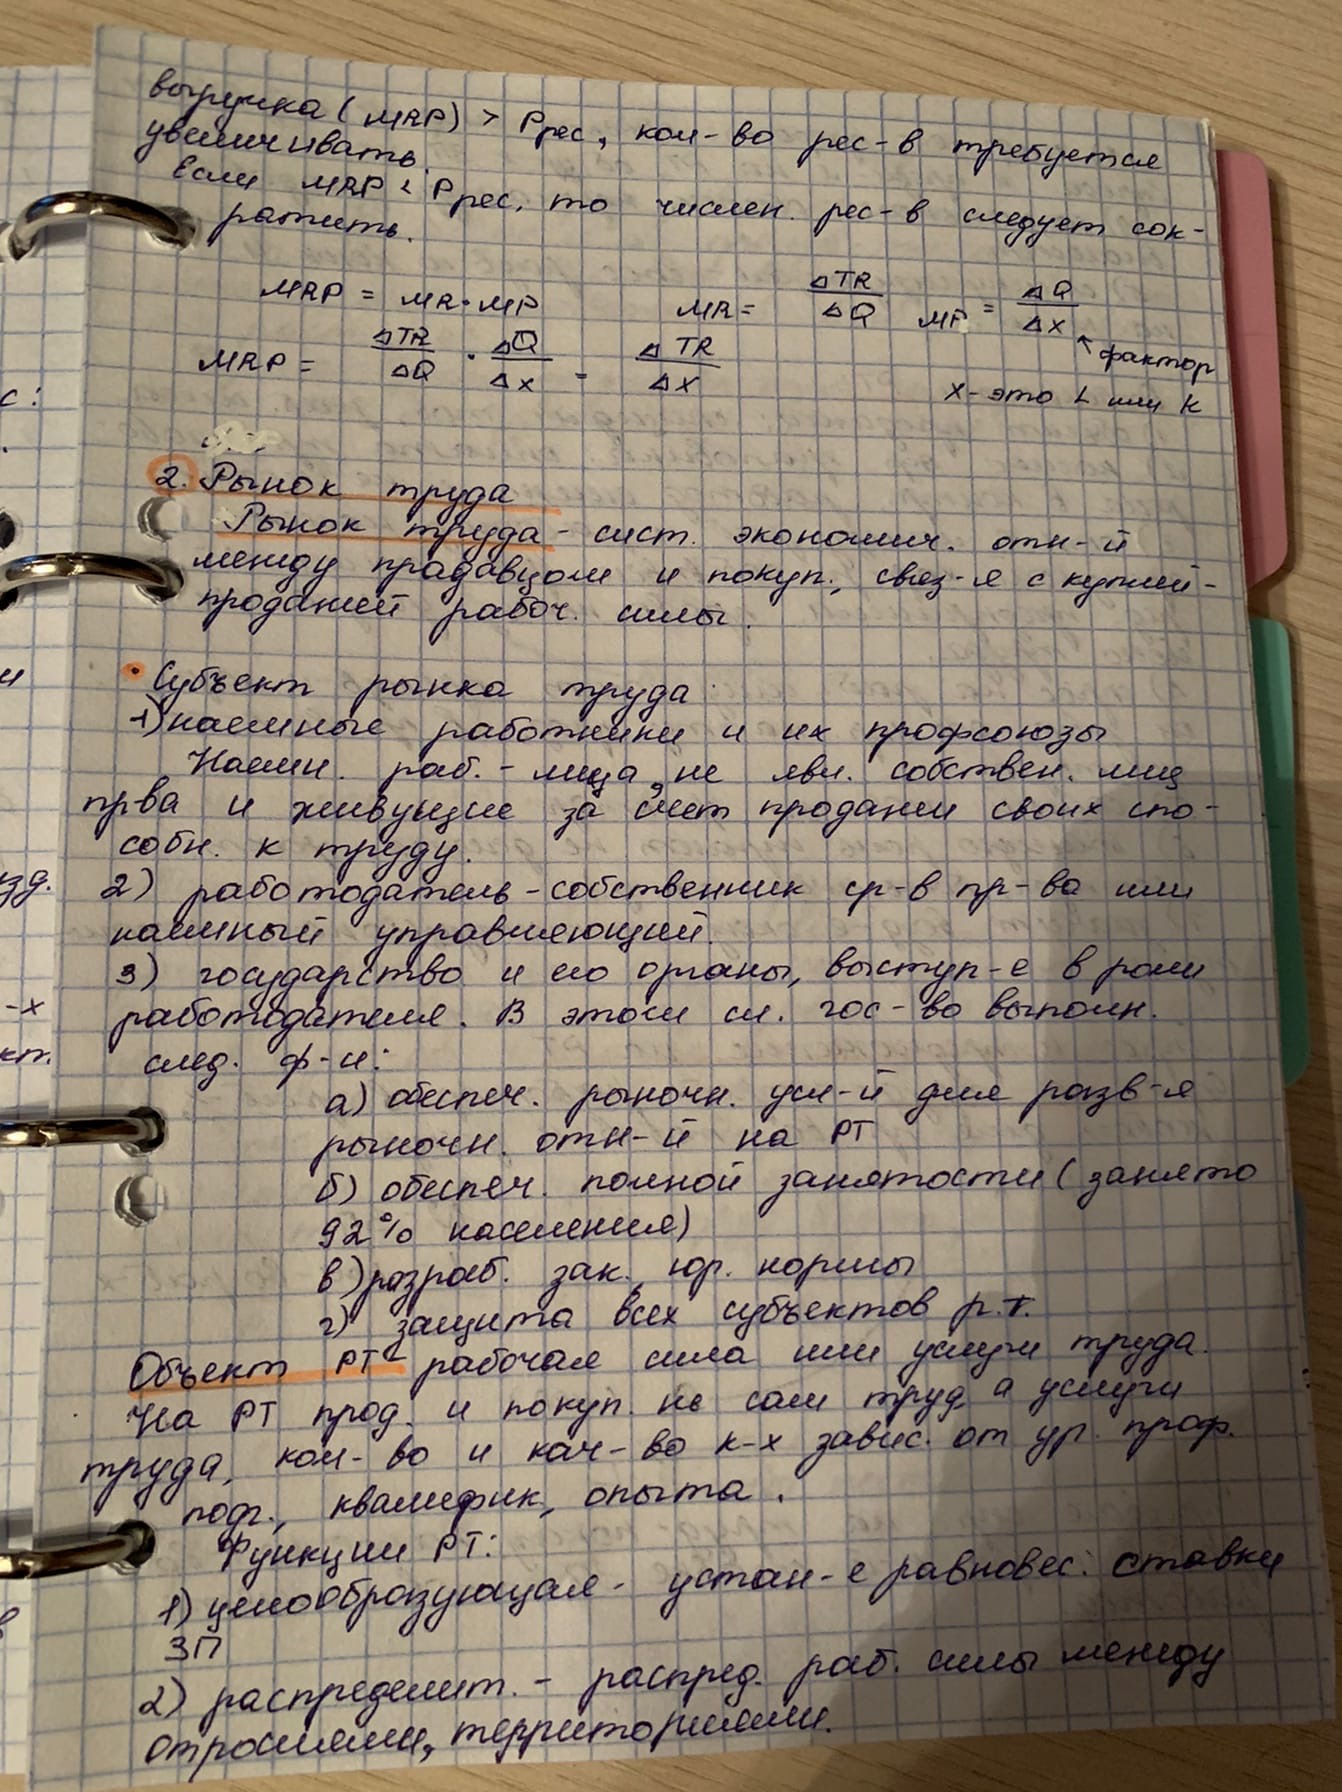 выручка (MRP) > Pрес, кол-во рес-в требуется
увеличивать.
Если MRP < Pрес, то числен. рес-в следует сок-
ратить.
MRP = MR · MP MR = ΔTR/ΔQ MP = ΔQ/ΔX
↖ фактор
MRP = ΔTR/ΔQ · ΔQ/ΔX = ΔTR/ΔX
X - это L или K
2. Рынок труда
Рынок труда - сист. экономич. отн-й
между продавцом и покуп., связ-я с куплей-
продажей рабоч. силы.
• Субъект рынка труда:
1) наемные работники и их профсоюзы
Наемн. раб. - лица, не явл. собствен. лиц
пр-ва и живущие за счет продажи своих спо-
собн. к труду.
2) работодатель - собственник ср-в пр-ва или
наемный управляющий.
3) государство и его органы, выступ-е в роли
работодателя. В этом сл. гос-во выполн.
след. ф-и:
а) обеспеч. рыночн. усл-й для разв-я
рыночн. отн-й на РТ
б) обеспеч. полной занятости (занято
92% населения)
в) разраб. зак., юр. нормы
г) защита всех субъектов р.т.
Объект РТ - рабочая сила или услуги труда.
На РТ прод. и покуп. не сам труд, а услуги
труда, кол-во и кач-во к-х завис. от ур. проф.
под., квалифик, опыта.
Функции РТ:
1) ценообразующая - устан-е равновес. ставки
ЗП
2) распределит. - распред. раб. силы между
отраслями, территориями.